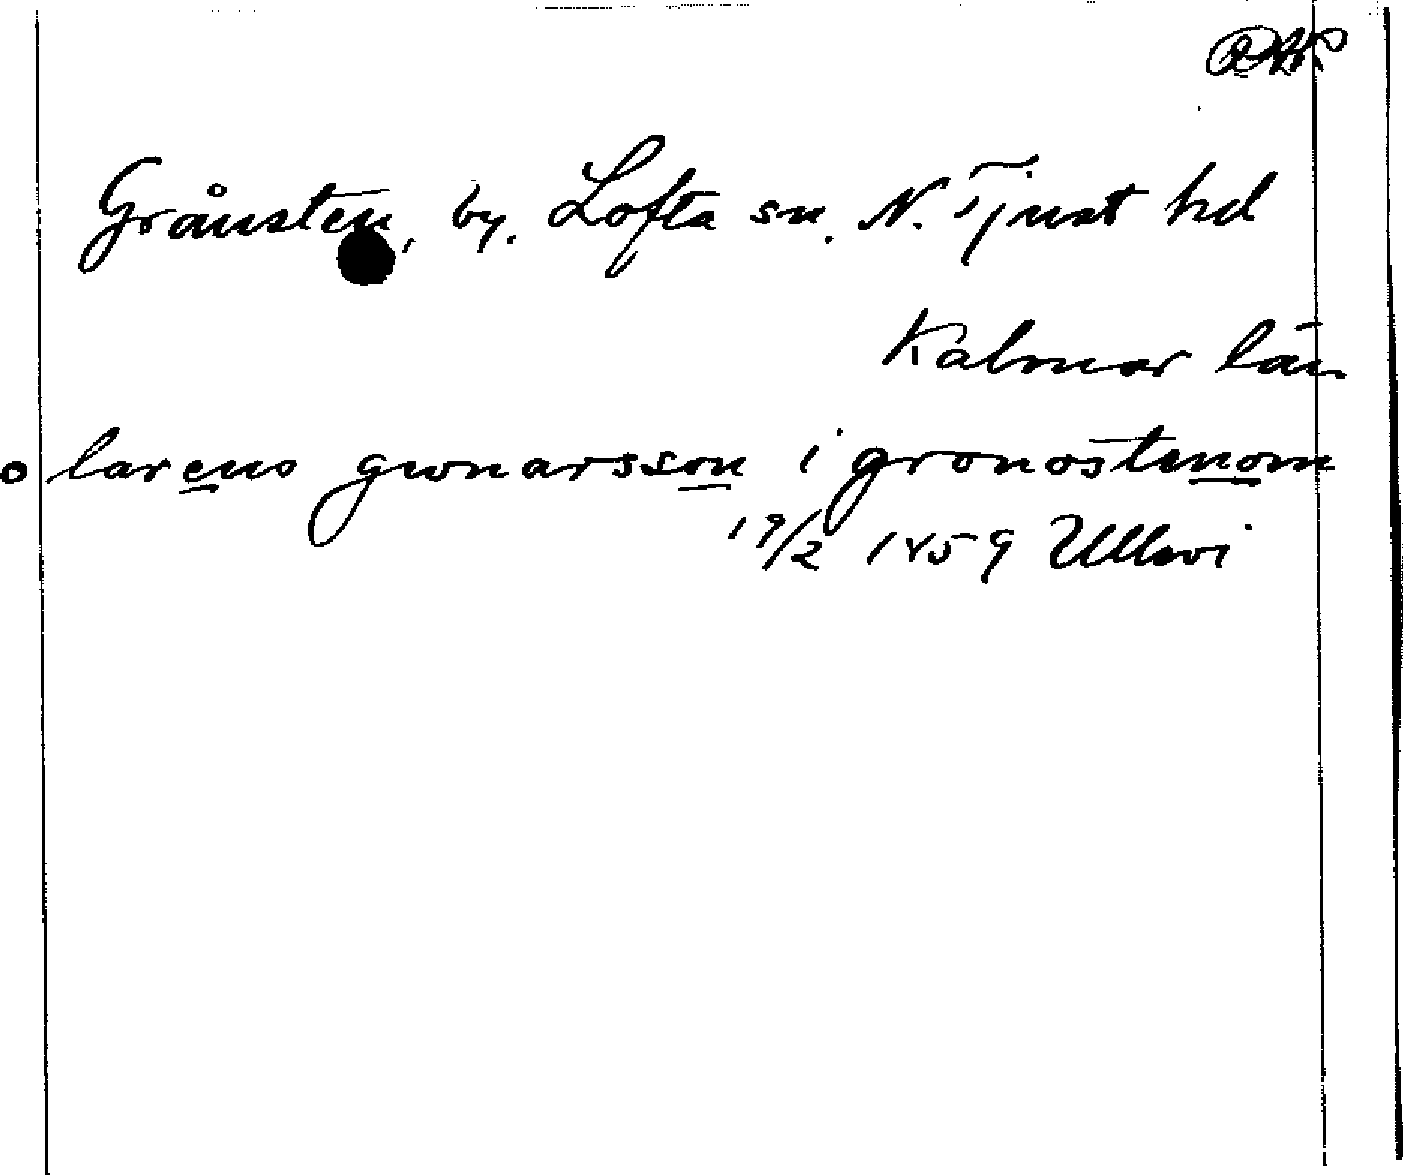 Grånsten, by. Lofta sn. N. Tjust hd
Kalmar län
o larens gwnarsson i gronostenom
19/2 1459 Ullevi